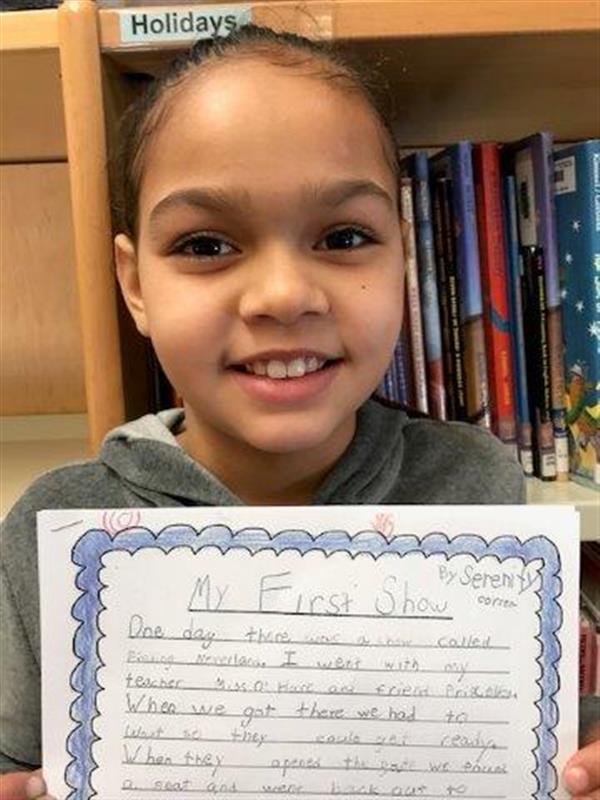 Holidays
By Serenity
Correa
My First Show
One day there was a show called
Finding Neverland. I went with my
teacher Miss O'Hare and friend
When we got there we had to
wait so they could get ready.
When they opened the we found
a seat and went back out to